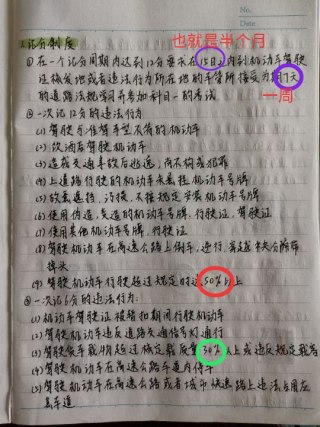 No.
Date
也就是半个月
记分制度
①在一个记分周期内达到12分要求在15日之内到机动车驾驶
证核发地或者违法行为所在地的车管所接受为期7天
的道路法规学习并参加科目一的考试
一周
②一次记12分的违法行为
(1)驾驶与准驾车型不符的机动车
(2)饮酒后驾驶机动车
(3)造成交通事故后逃逸,尚不构成犯罪
(4)上道路行驶的机动车未悬挂机动车号牌
(5)故意遮挡、污损、不按规定安装机动车号牌
(6)使用伪造、变造的机动车号牌、行驶证、驾驶证
(7)使用其他机动车号牌、行驶证
(8)驾驶机动车在高速公路上倒车、逆行、穿越中央分隔带
掉头
(9)驾驶机动车行驶超过规定时速50%以上
③一次记6分的违法行为:
(1)机动车驾驶证被暂扣期间行驶机动车
(2)驾驶机动车违反道路交通信号灯通行
(3)驾驶客车载物超过核定载质量30%以上或违反规定载客
(4)驾驶机动车在高速公路车道内停车
(5)驾驶机动车在高速公路或者城市快速路上违法占用应
急车道